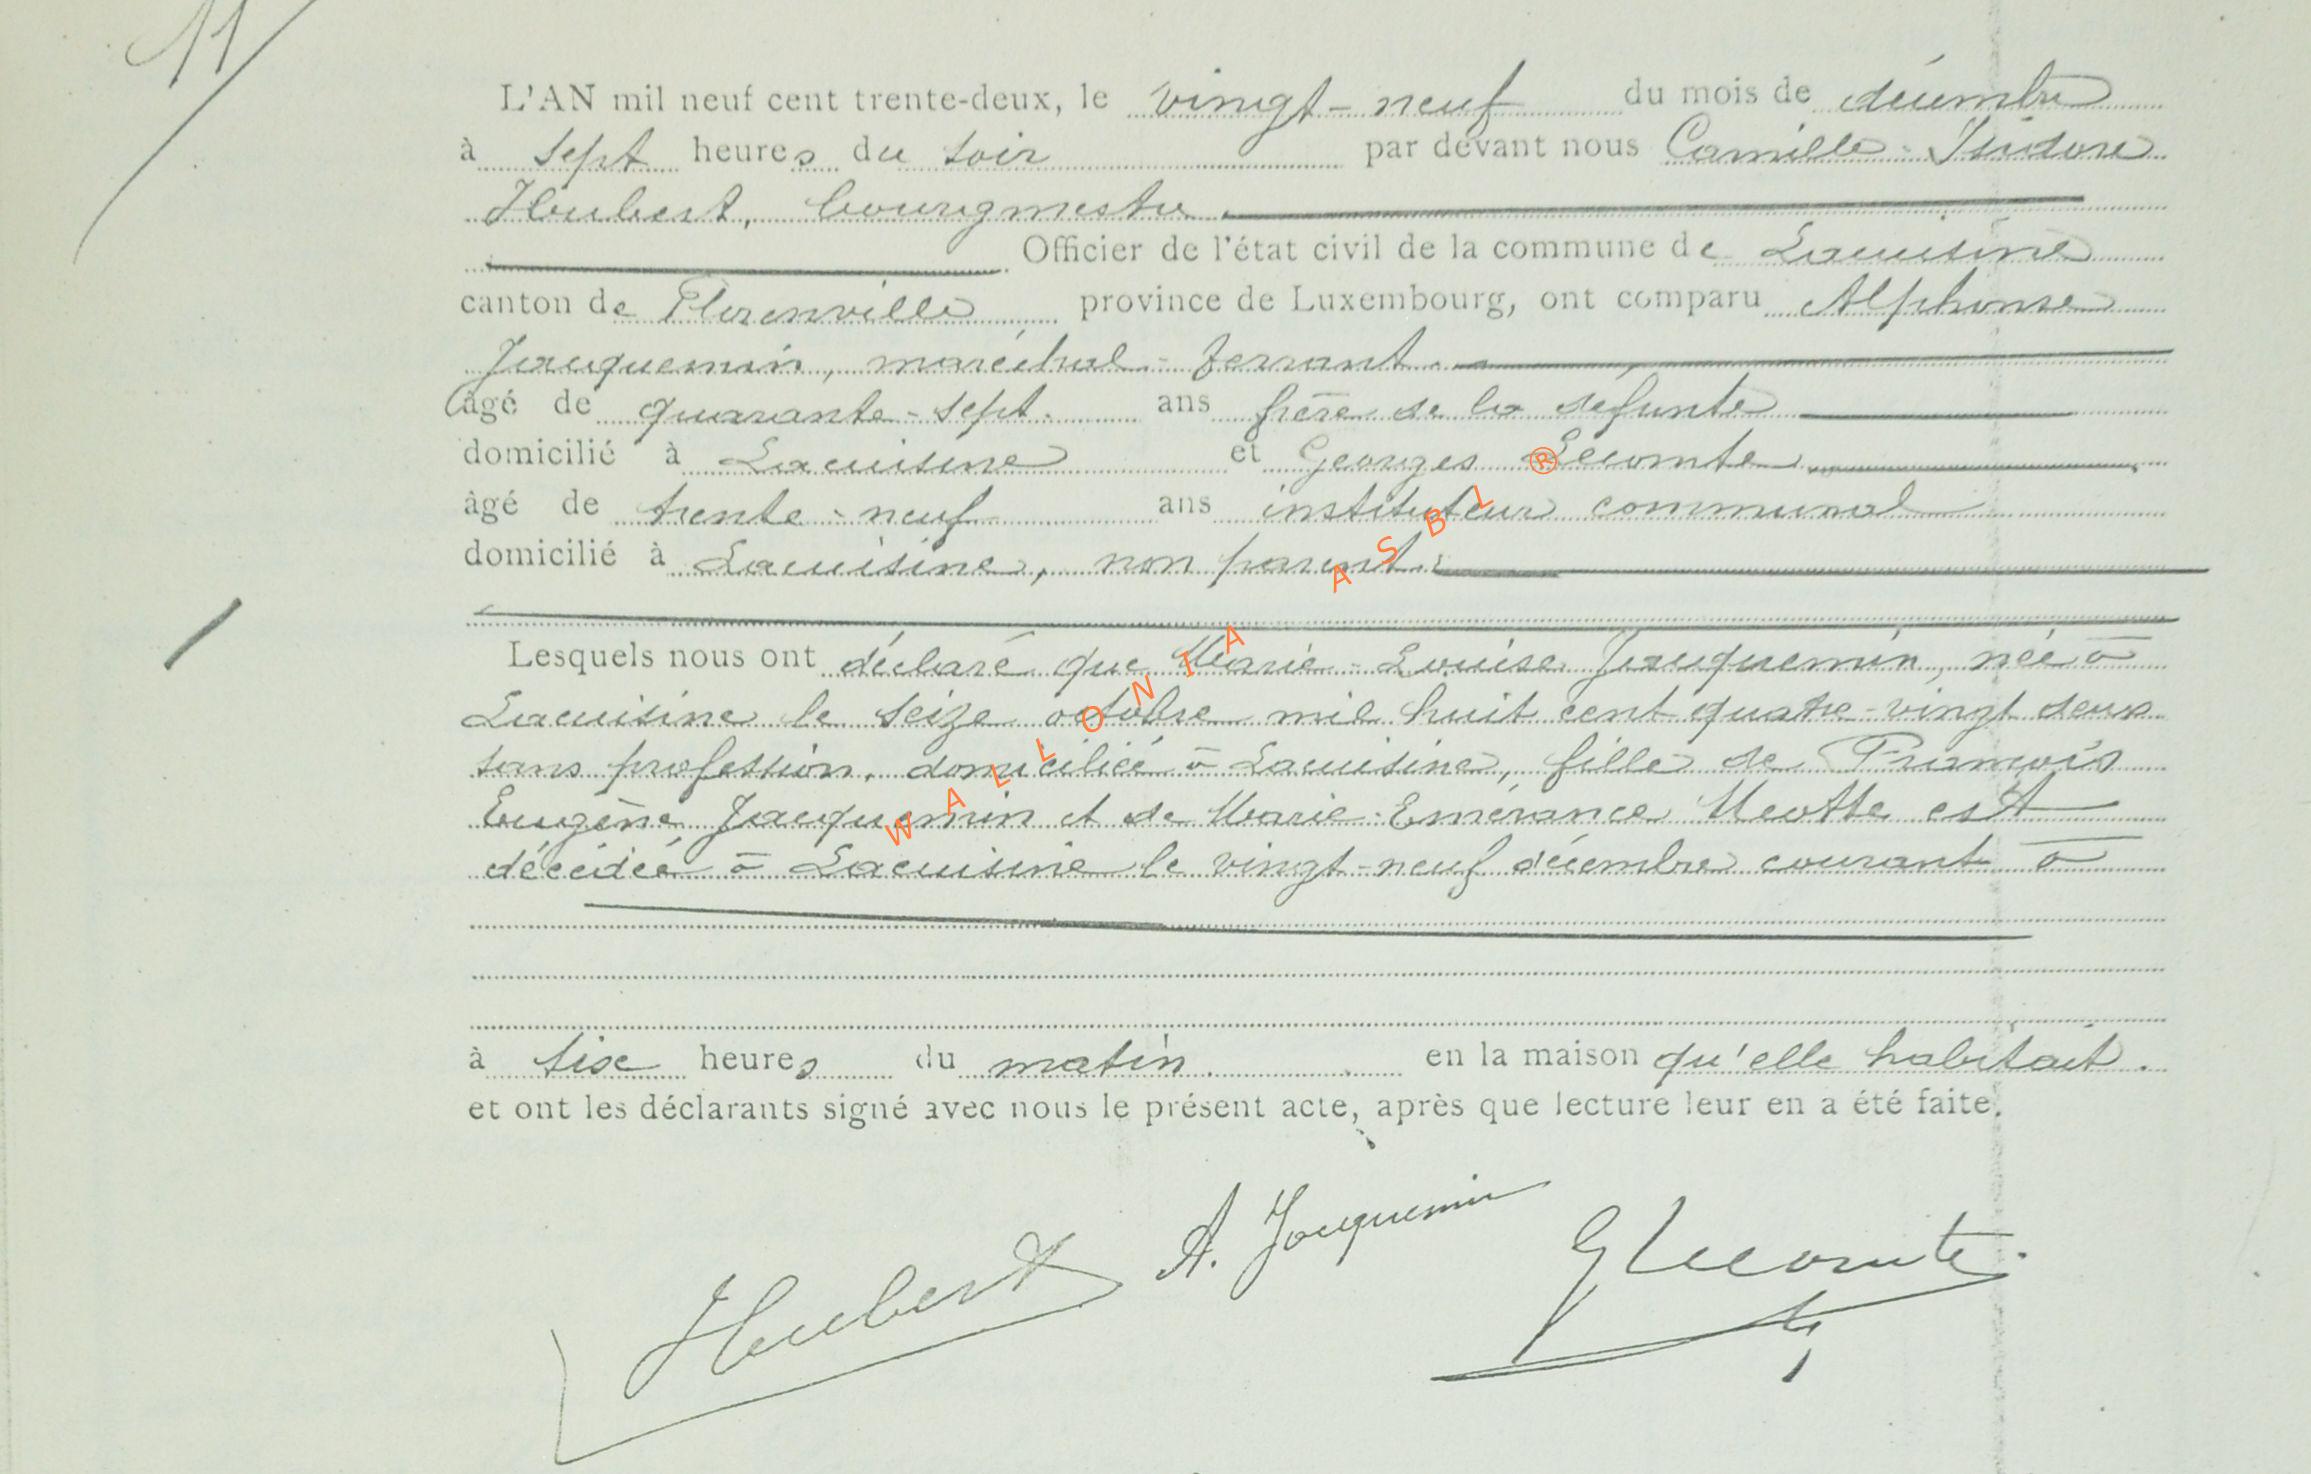 11
L'AN mil neuf cent trente-deux, le vingt-neuf du mois de décembre
à sept heures du soir par devant nous Camille-Isidore
Hubert, bourgmestre
Officier de l'état civil de la commune de Lacuisine
canton de Florenville province de Luxembourg, ont comparu Alphonse
Jacquemin, maréchal-ferrant.
âgé de quarante-sept. ans frère de la défunte
domicilié à Lacuisine et Georges Lecomte
âgé de trente-neuf ans instituteur communal
domicilié à Lacuisine, non parent.
Lesquels nous ont déclaré que Marie-Louise Jacquemin, née à
Lacuisine le seize octobre mil huit cent quatre-vingt deux
sans profession, domiciliée à Lacuisine, fille de François
Eugène Jacquemin et de Marie-Emérance Meotte est
décédée à Lacuisine le vingt-neuf décembre courant à
à six heures du matin. en la maison qu'elle habitait.
et ont les déclarants signé avec nous le présent acte, après que lecture leur en a été faite.
Hubert A. Jacquemin G Lecomte.
WALLONIA ASBL ®